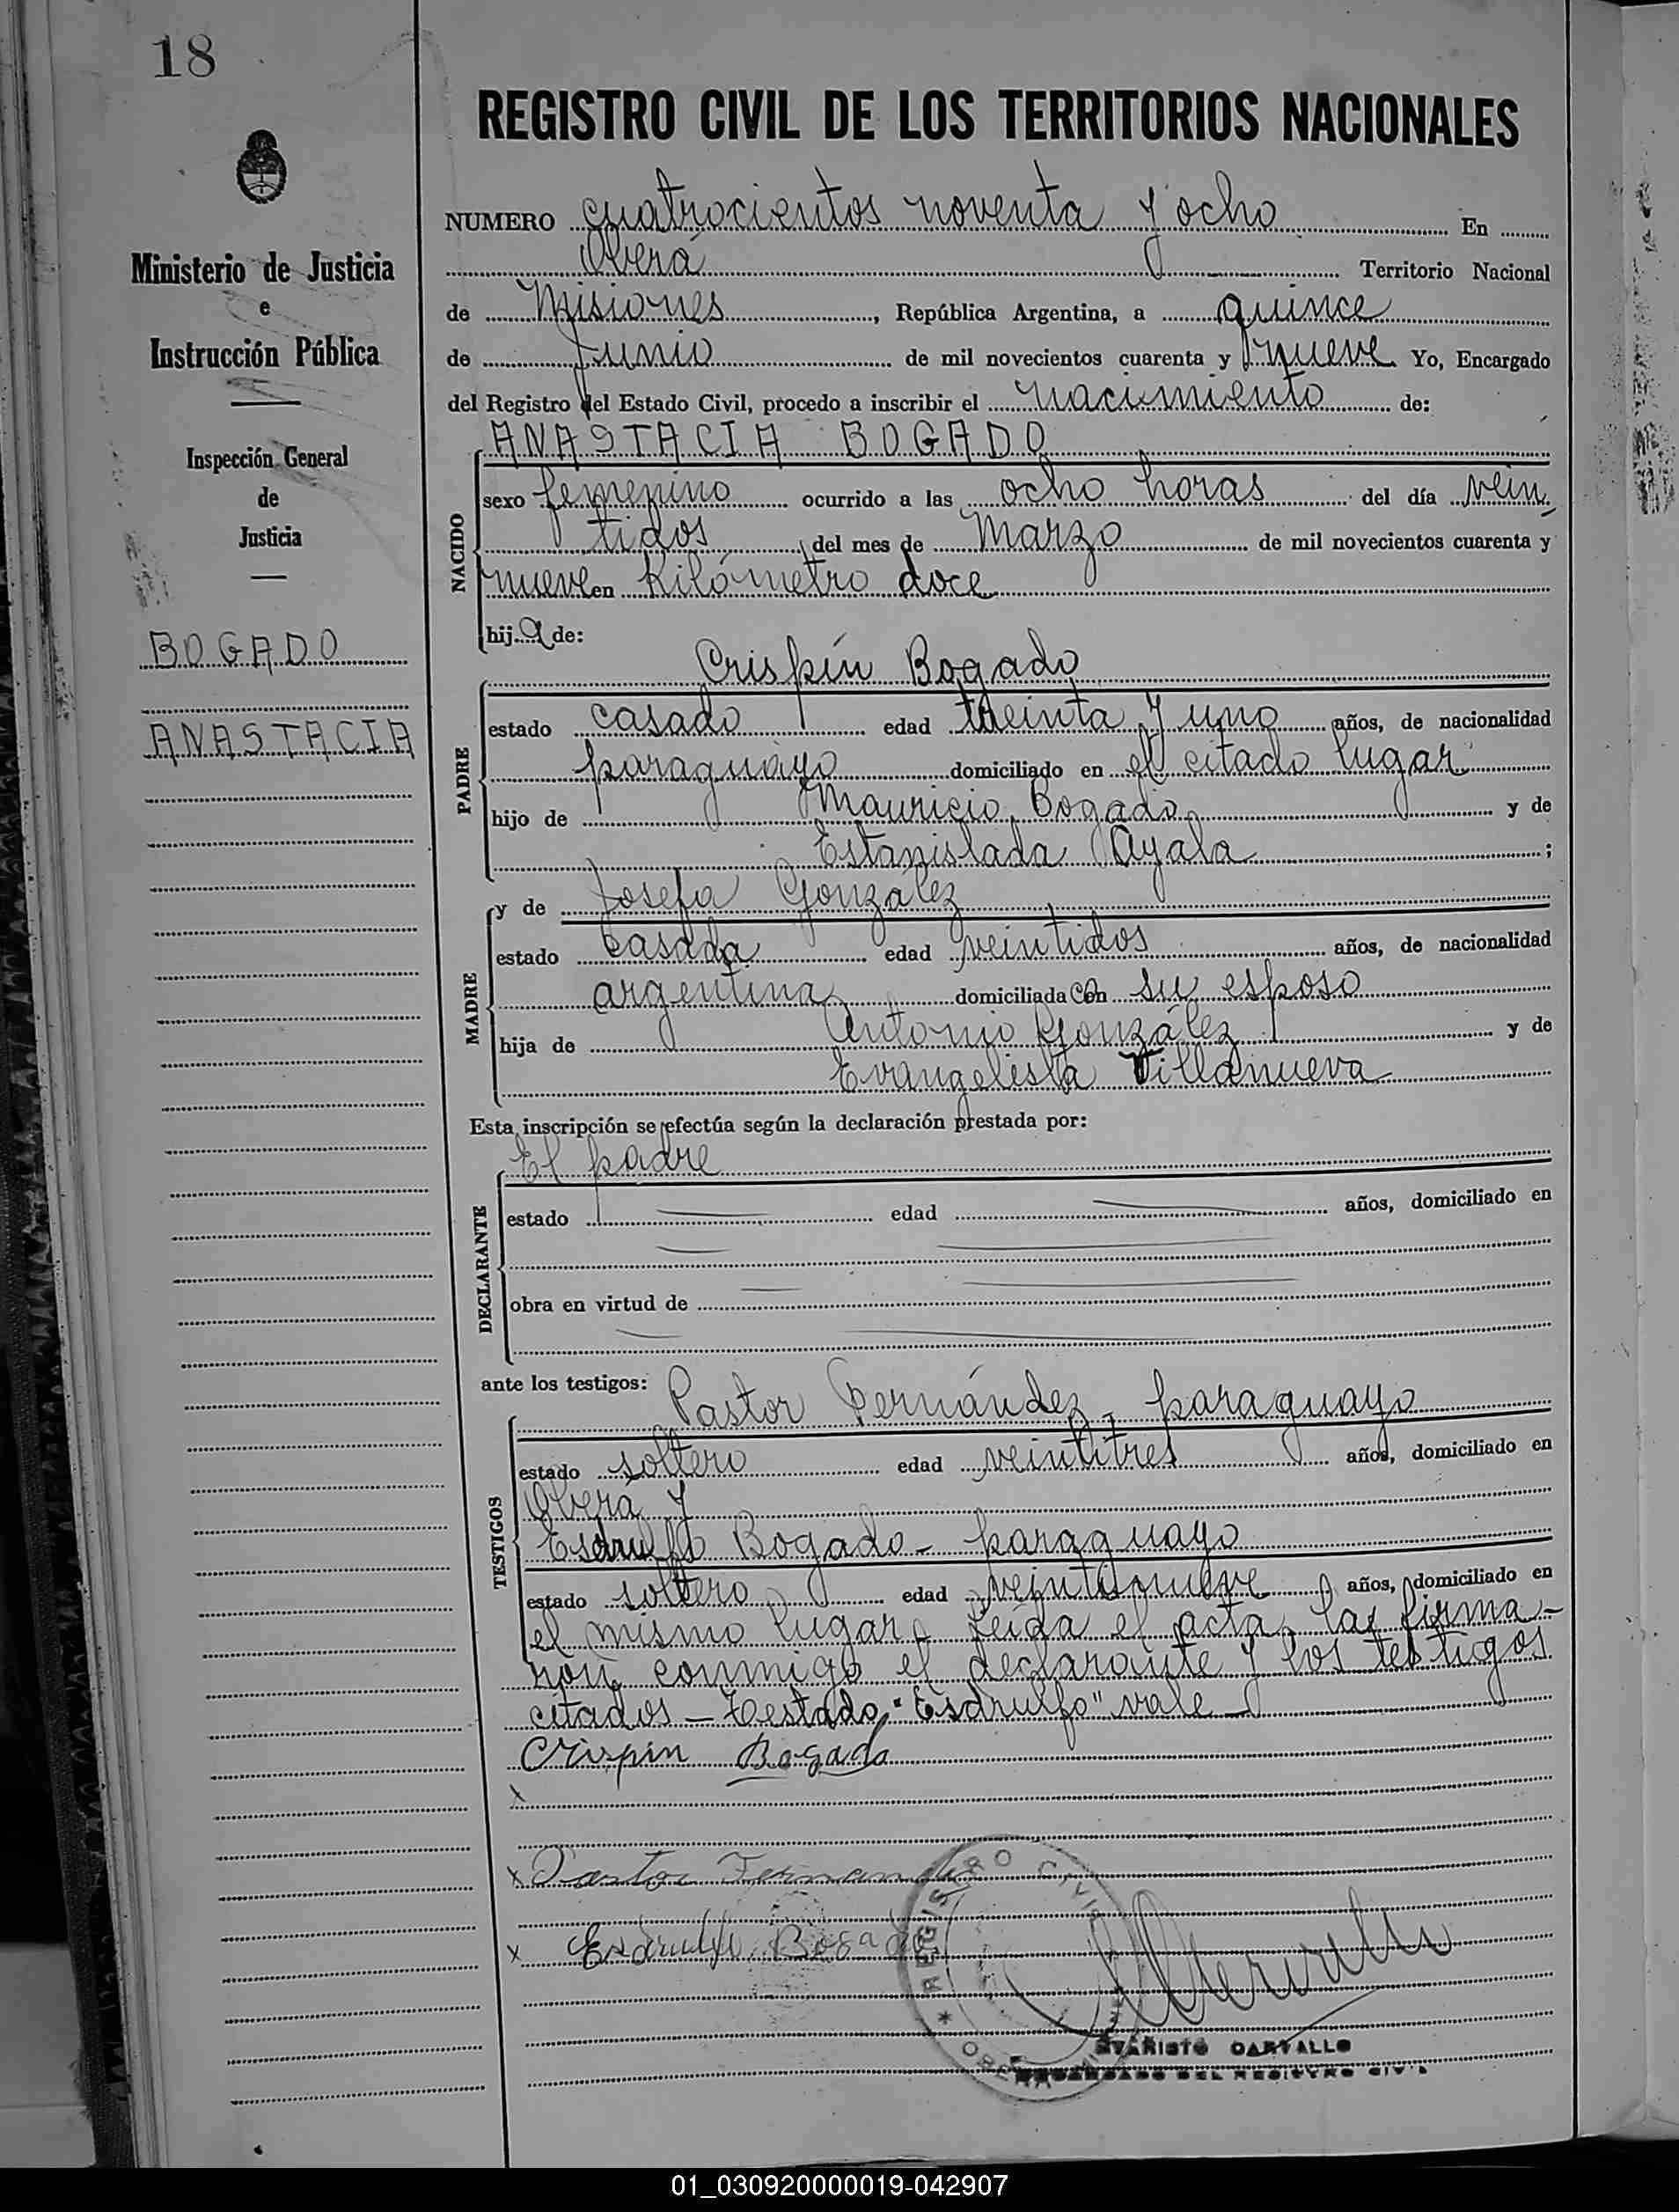 18
REGISTRO CIVIL DE LOS TERRITORIOS NACIONALES
Ministerio de Justicia
e
Instrucción Pública
Inspección General
de
Justicia
BOGADO
ANASTACIA
NUMERO cuatrocientos noventa y ocho En
Oberá Territorio Nacional
de Misiones, República Argentina, a quince
de Junio de mil novecientos cuarenta y nueve Yo, Encargado
del Registro del Estado Civil, procedo a inscribir el nacimiento de:
ANASTACIA BOGADO
NACIDO
sexo femenino ocurrido a las ocho horas del día vein
tidos del mes de Marzo de mil novecientos cuarenta y
nueve en Kilómetro doce
hija de:
Crispín Bogado
PADRE
estado casado edad treinta y uno años, de nacionalidad
paraguayo domiciliado en el citado lugar
hijo de Mauricio Bogado y de
Estanislada Ayala;
y de Josefa González
MADRE
estado casada edad veintidos años, de nacionalidad
argentina domiciliada con su esposo
hija de Antonio González y de
Evangelista Villanueva
Esta inscripción se efectúa según la declaración prestada por:
El padre
DECLARANTE
estado edad años, domiciliado en
obra en virtud de
ante los testigos:
Pastor Fernández, paraguayo
TESTIGOS
estado soltero edad veintitres años, domiciliado en
Oberá y
Esdrulfo Bogado - paraguayo
estado soltero edad veintinueve años, domiciliado en
el mismo lugar, Leída el acta, la firma-
ron conmigo el declarante y los testigos
citados - Testado "Esdrulfo" vale -
Crispin Bogado
x
x Pastor Fernandez
x Esdrulfo Bogado
REGISTRO CIVIL
OBERA
EVARISTO CARVALLO
ENCARGADO DEL REGISTRO CIVIL
01_030920000019-042907